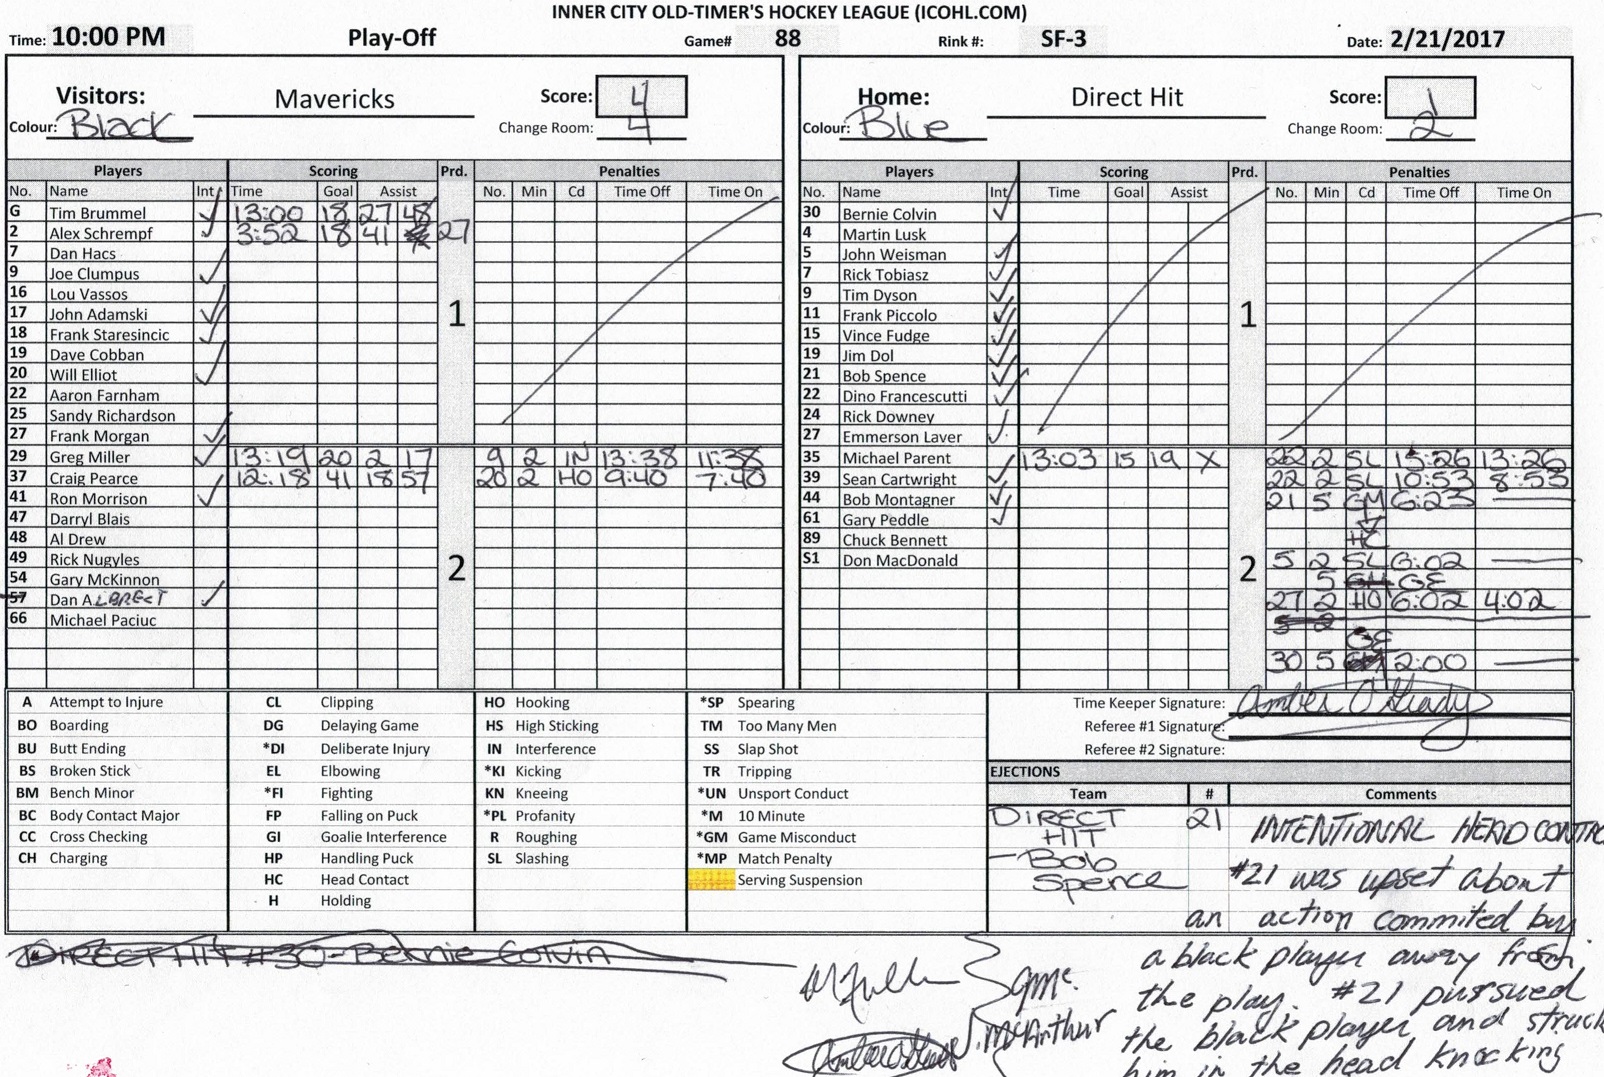 INNER CITY OLD-TIMER'S HOCKEY LEAGUE (ICOHL.COM)
Time: 10:00 PM Play-Off Game# 88 Rink #: SF-3 Date: 2/21/2017
Visitors: Mavericks Score: 4
Colour: Black Change Room: 4
Home: Direct Hit Score: 1
Colour: Blue Change Room: 2
Players Scoring Prd. Penalties
No. Name Int Time Goal Assist No. Min Cd Time Off Time On
G Tim Brummel 13:00 18 27 48
2 Alex Schrempf 3:52 18 41 27
7 Dan Hacs
9 Joe Clumpus
16 Lou Vassos
17 John Adamski 1
18 Frank Staresincic
19 Dave Cobban
20 Will Elliot
22 Aaron Farnham
25 Sandy Richardson
27 Frank Morgan
29 Greg Miller 13:19 20 2 17 9 2 IN 13:38 11:38
37 Craig Pearce 12:18 41 18 57 20 2 HO 9:40 7:40
41 Ron Morrison
47 Darryl Blais
48 Al Drew
49 Rick Nugyles 2
54 Gary McKinnon
57 Dan ALBRECT
66 Michael Paciuc
Players Scoring Prd. Penalties
No. Name Int Time Goal Assist No. Min Cd Time Off Time On
30 Bernie Colvin
4 Martin Lusk
5 John Weisman
7 Rick Tobiasz
9 Tim Dyson
11 Frank Piccolo 1
15 Vince Fudge
19 Jim Dol
21 Bob Spence
22 Dino Francescutti
24 Rick Downey
27 Emmerson Laver
35 Michael Parent 13:03 15 19 X 22 2 SL 15:26 13:26
39 Sean Cartwright 22 2 SL 10:53 8:53
44 Bob Montagner 21 5 GM 6:23
61 Gary Peddle
89 Chuck Bennett HC
S1 Don MacDonald 2 5 2 SL 6:02
5 GE
27 2 HO 6:02 4:02
5 2
GE
30 5 2:00
A Attempt to Injure
BO Boarding
BU Butt Ending
BS Broken Stick
BM Bench Minor
BC Body Contact Major
CC Cross Checking
CH Charging
CL Clipping
DG Delaying Game
*DI Deliberate Injury
EL Elbowing
*FI Fighting
FP Falling on Puck
GI Goalie Interference
HP Handling Puck
HC Head Contact
H Holding
HO Hooking
HS High Sticking
IN Interference
*KI Kicking
KN Kneeing
*PL Profanity
R Roughing
SL Slashing
*SP Spearing
TM Too Many Men
SS Slap Shot
TR Tripping
*UN Unsport Conduct
*M 10 Minute
*GM Game Misconduct
*MP Match Penalty
Serving Suspension
Time Keeper Signature: Amber O'Grady
Referee #1 Signature:
Referee #2 Signature:
EJECTIONS
Team # Comments
DIRECT HIT 21
- Bob Spence
INTENTIONAL HEAD CONTAC
#21 was upset about
an action commited by
a black player away from
the play. #21 pursued
the black player and struck
him in the head knocking
DIRECT HIT #30 - Bernie Colvin
J. McArthur